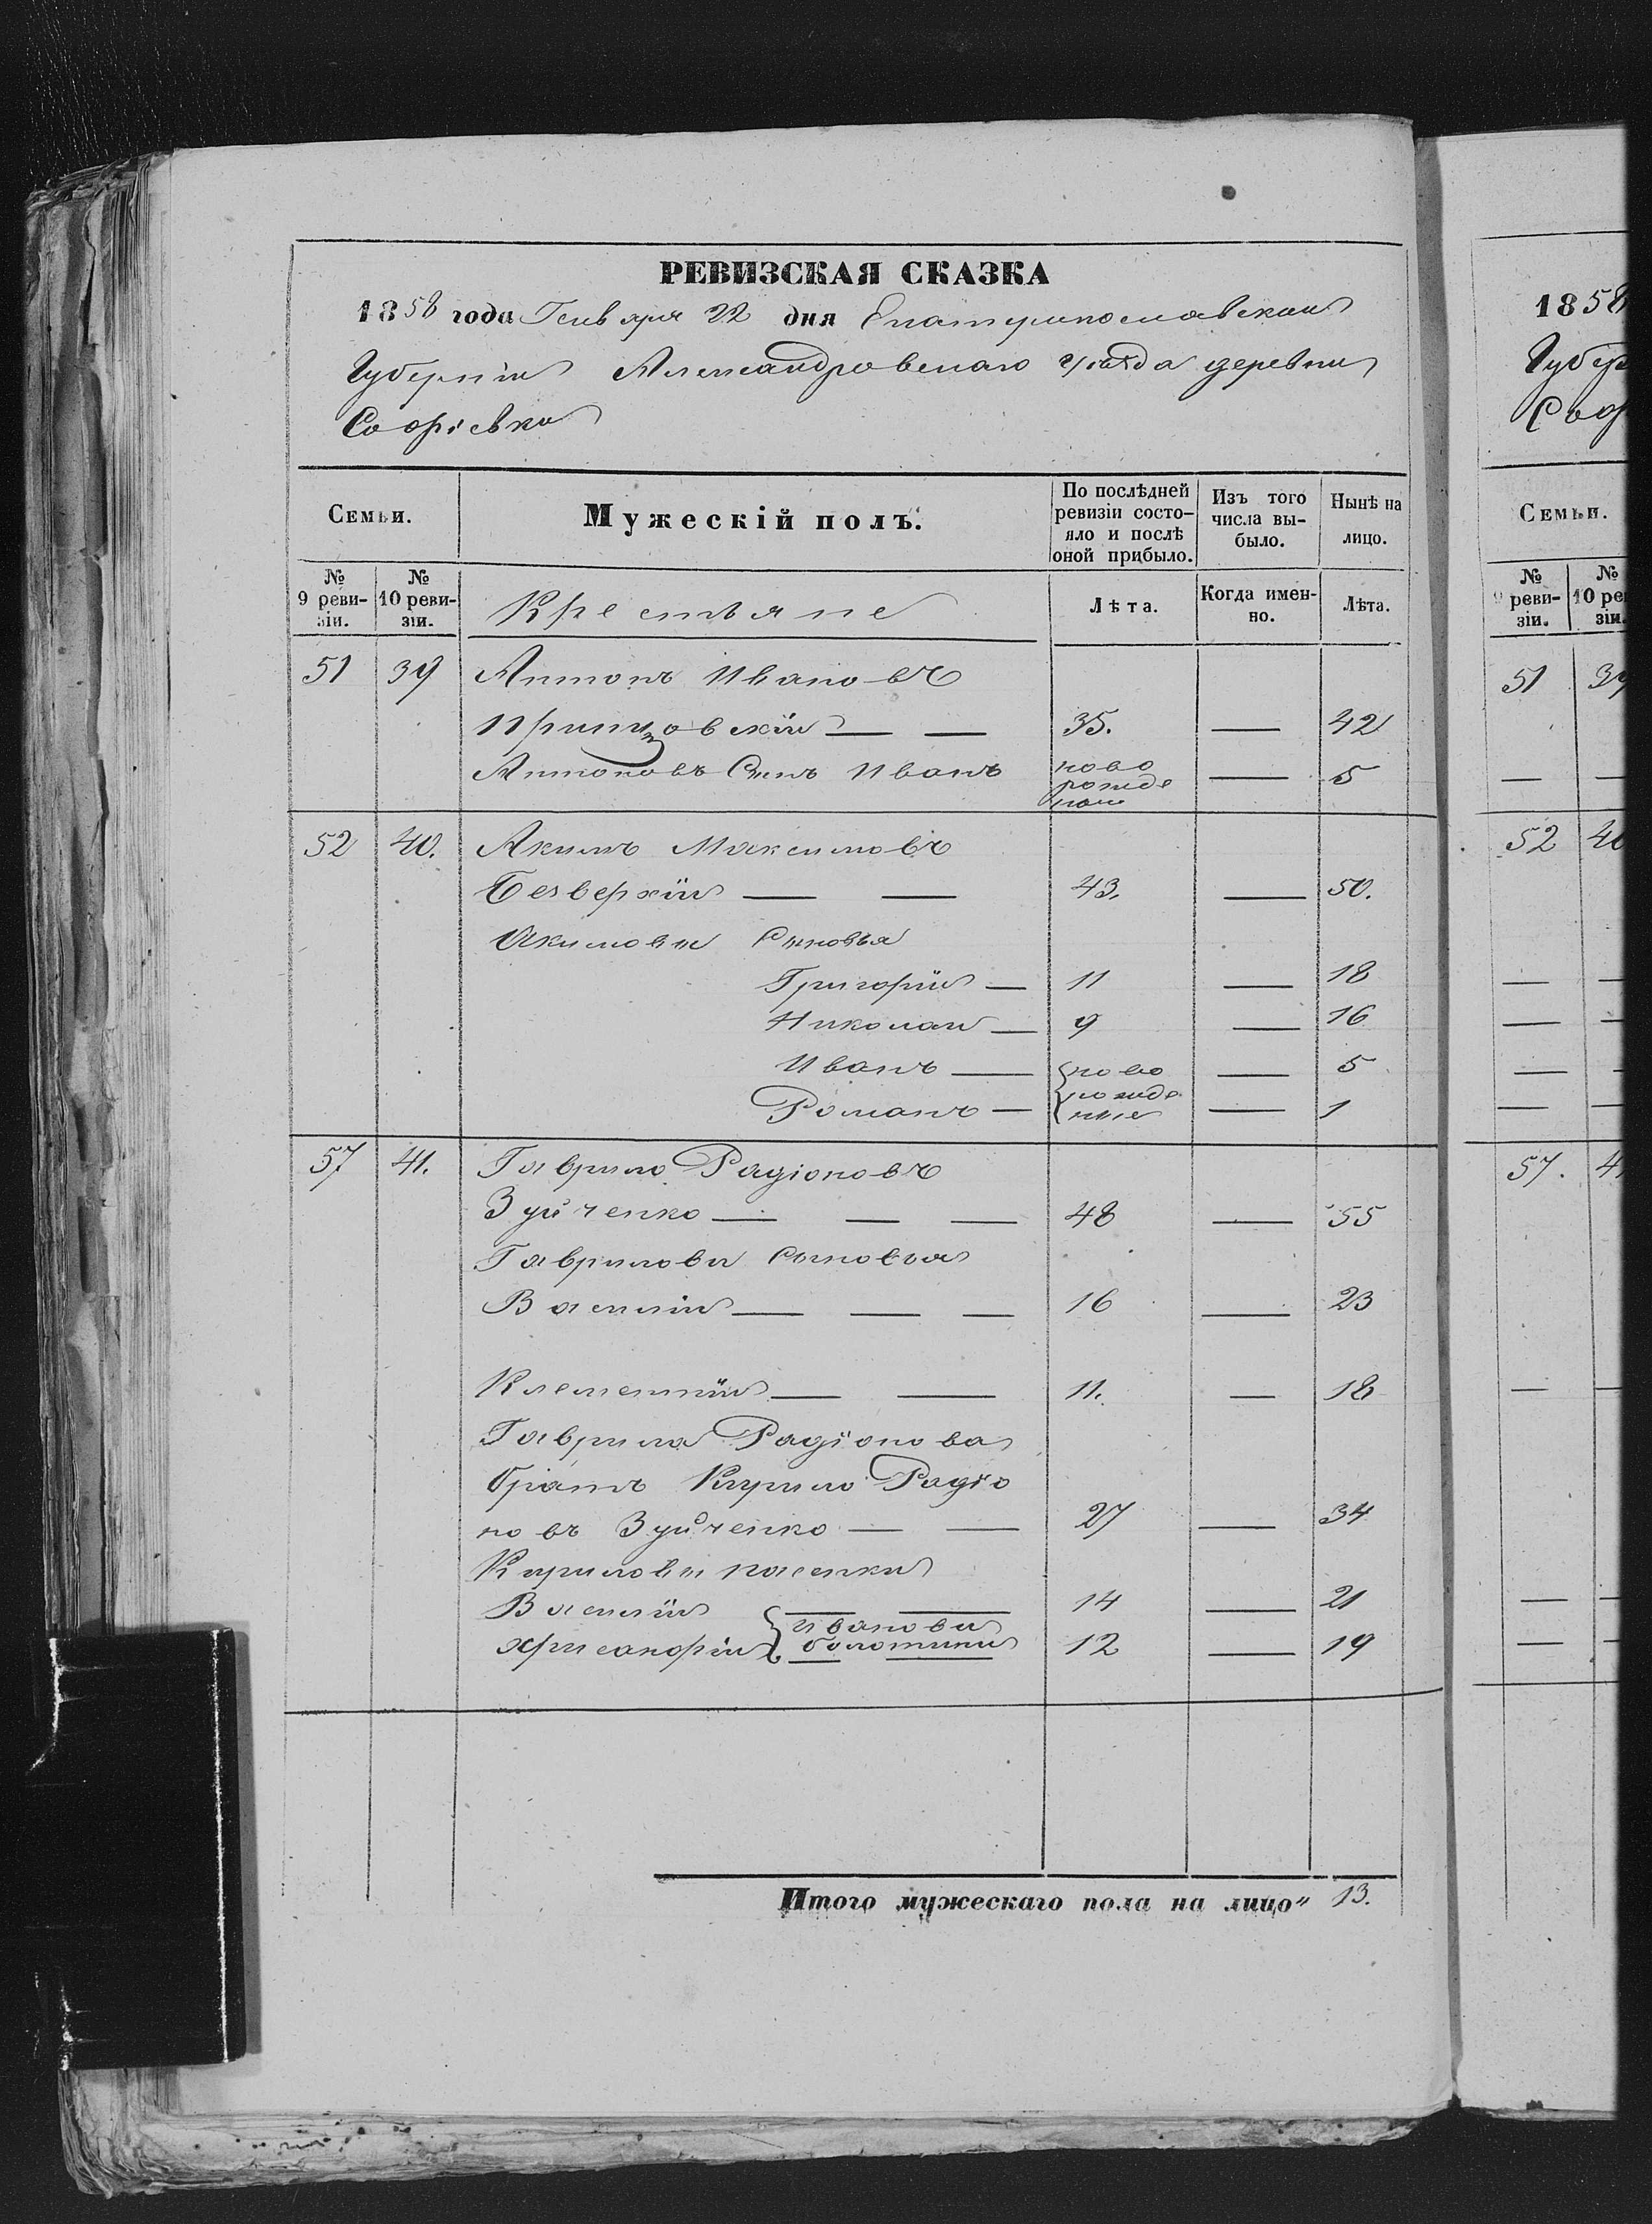 РЕВИЗСКАЯ СКАЗКА
1858 года Генваря 22 дня Екатеринославской
Губерніи Александровскаго уѣзда деревни
Софіевки
Семьи.
Мужескій полъ.
По послѣдней ревизіи состо-
яло и послѣ
оной прибыло.
Изъ того
числа вы-
было.
Нынѣ на
лицо.
№ 9 реви-
зіи.
№ 10 реви-
зіи.
Крестьяне
Лѣта.
Когда имен-
но.
Лѣта.
51 39 Антонъ Ивановъ
35. — 42
Антоновъ Сынъ Иванъ ново
рожде
— 5
52 40. Акимъ Максимовъ
Безверхій — — 43. — 50.
Акимовы Сыновья
Григорій — 11 — 18
Николай — 9 — 16
Иванъ — ново — 5
Романъ — рожде
ные — 1
57 41. Гаврило Радіоновъ
Зуйченко — — — 48 — 55
Гаврилови Сыновья
Василій — — — 16 — 23
Клементій — — 11. — 18
Гаврила Радіонова
братъ Кирило Радіо
новъ Зуйченко — — 27 — 34
Кириловы пасенки
Василій — — 14 — 21
Ивановы
Хрисанфій болотини 12 — 19
Итого мужескаго пола на лицо" 13.
1858
Губер
Соф
Семьи.
№ 9 реви-
зіи.
№ 10 ре
зіи.
51 39
52 40
57. 41